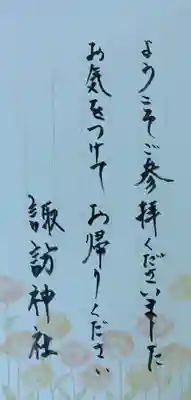 ようこそご参拝くださいました
お気をつけてお帰りください
諏訪神社